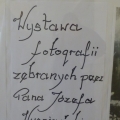 Wystawa
fotografii
zebranych przez
Pana Józefa